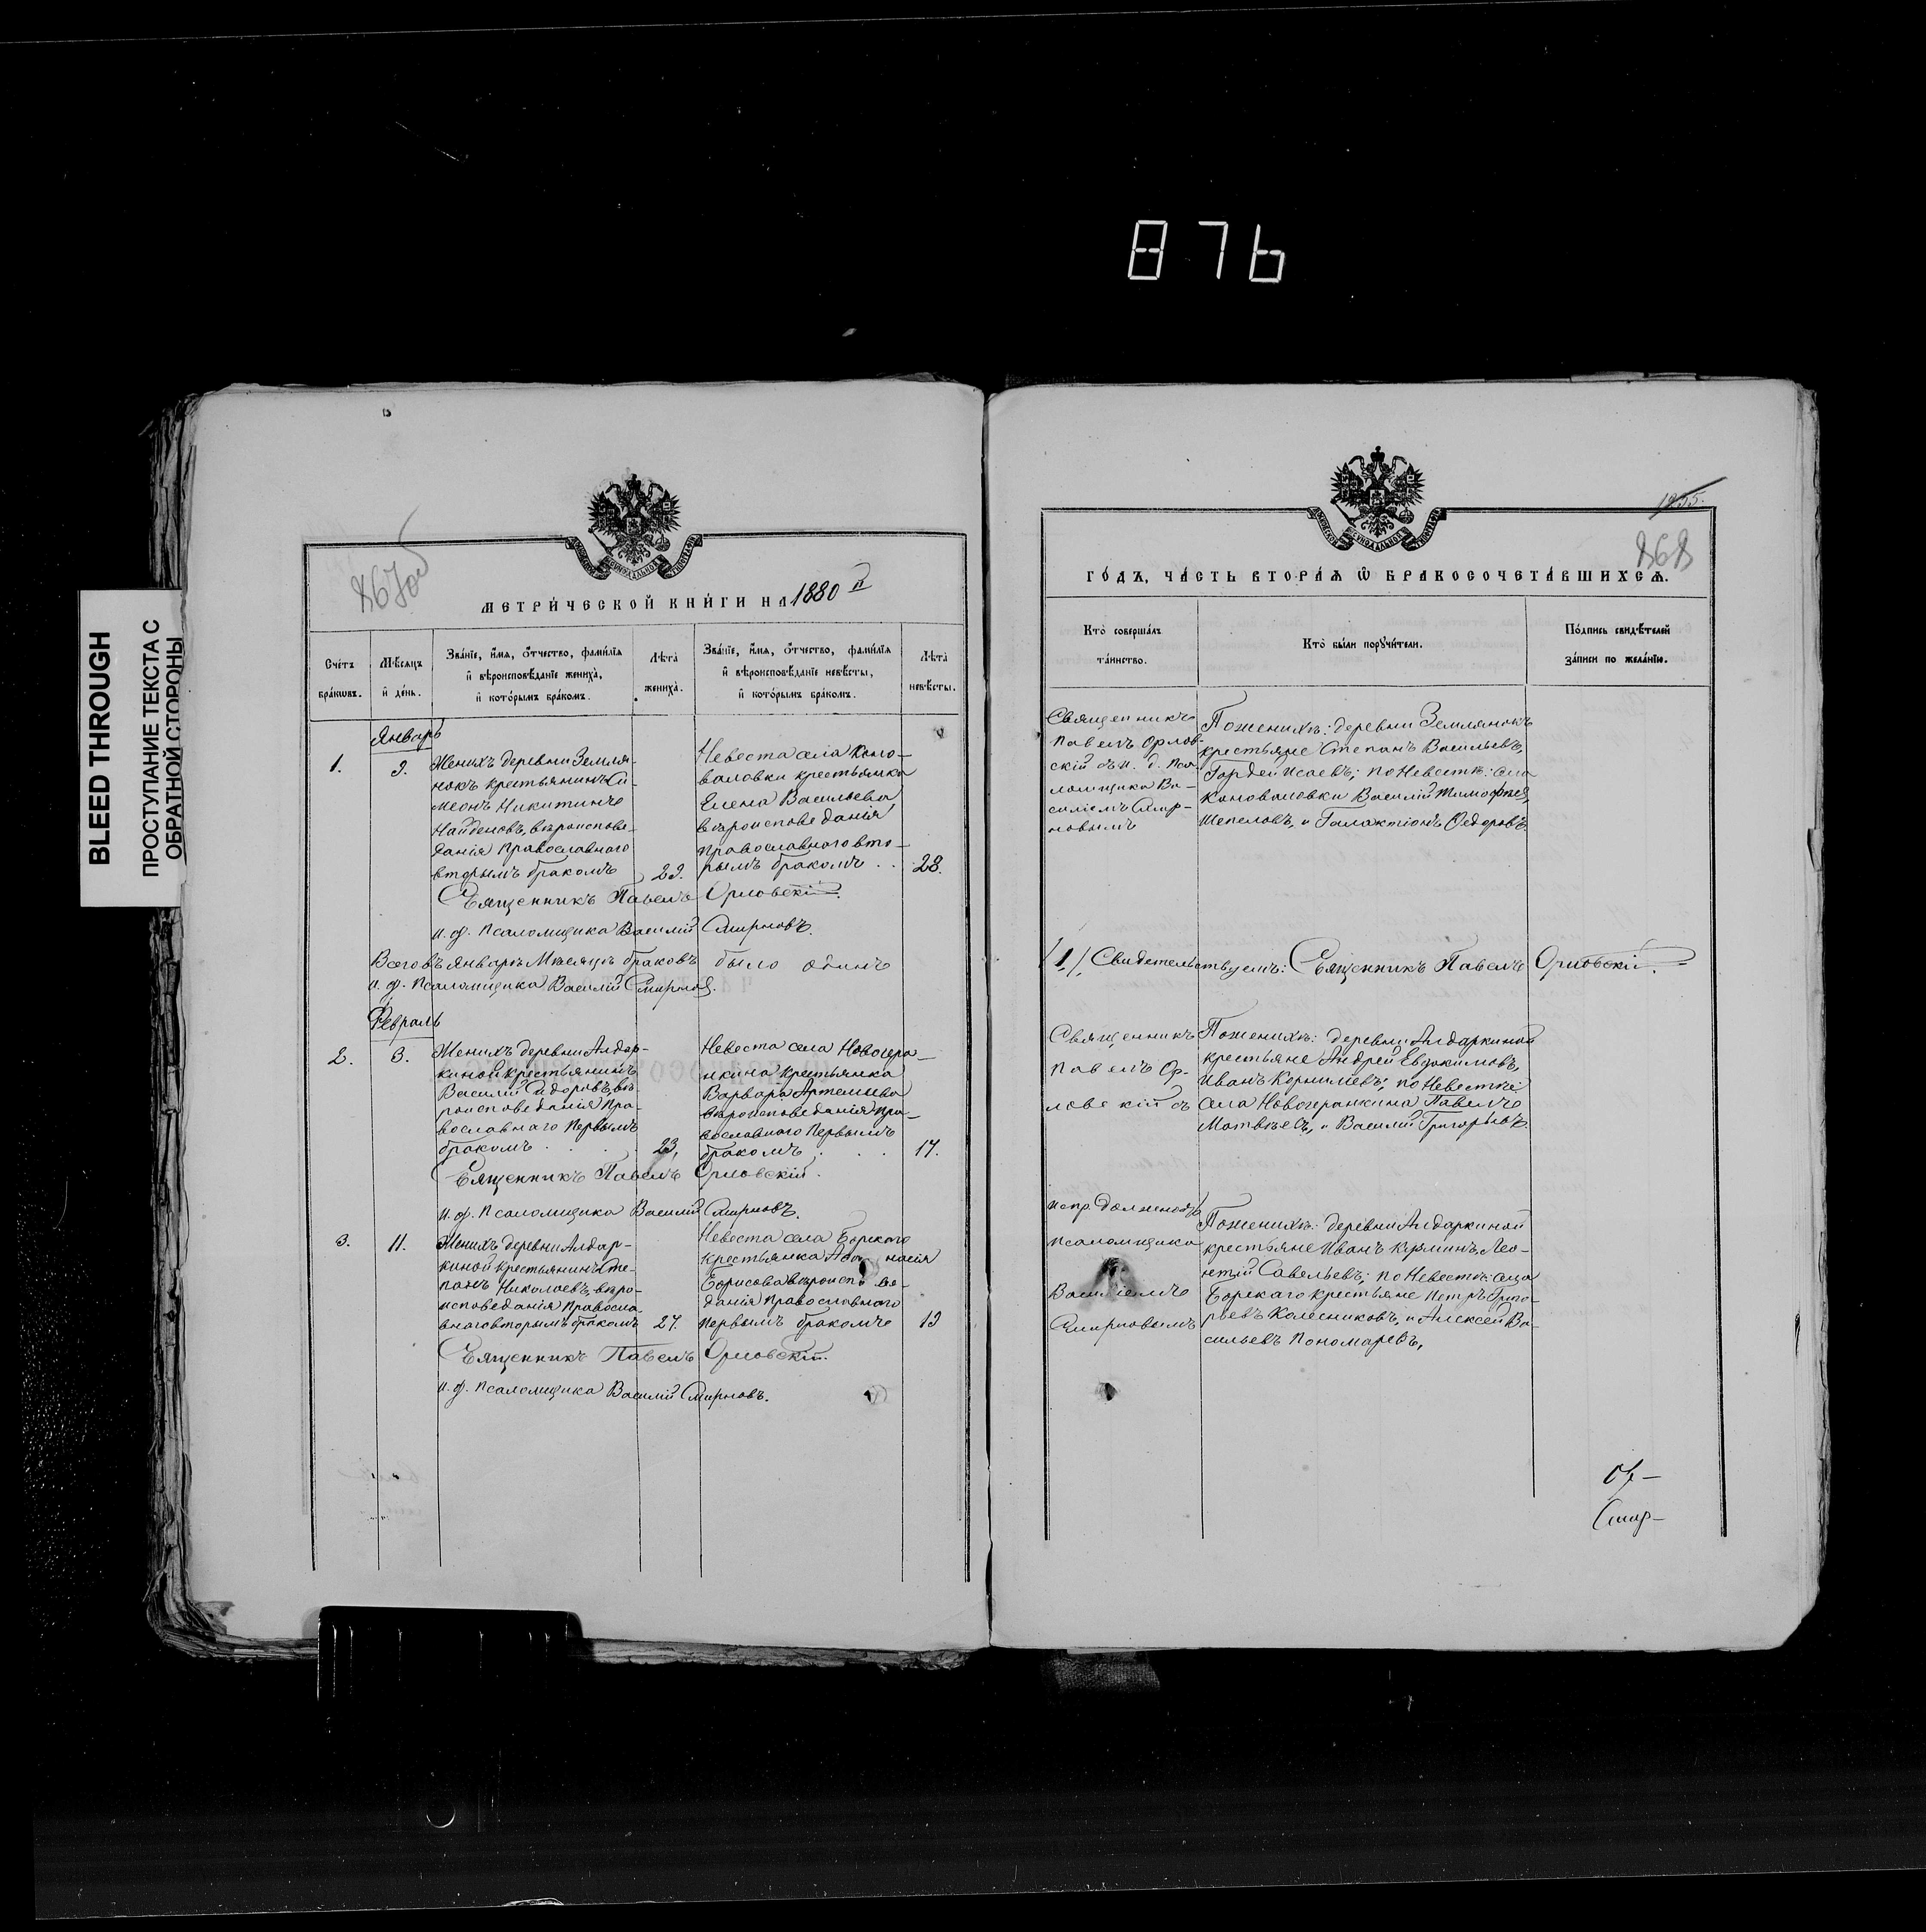 876
BLEED THROUGH
ПРОСТУПАНИЕ ТЕКСТА С
ОБРАТНОЙ СТОРОНЫ
867об
МЕТРИ́ЧЕСКОЙ КНИ́ГИ НА 1880 й
Сче́тъ бра́кѡвъ.
Мѣ́сѧцъ и҆ де́нь.
Зва́нїе, и҆́мѧ, ѻ҆́тчество, фами́лїѧ
и҆ вѣроисповѣ́данїе жениха̀,
и҆ кото́рымъ бра́комъ.
Лѣ́та жениха̀.
Зва́нїе, и҆́мѧ, ѻ҆́тчество, фами́лїѧ
и҆ вѣроисповѣ́данїе невѣ́сты,
и҆ кото́рымъ бра́комъ.
Лѣ́та невѣ́сты.
Январь
1.
9.
Женихъ деревни Земля-
нокъ крестьянинъ Си
меонъ Никитинъ
Найденовъ, вѣроиспове-
данія православнаго
вторымъ бракомъ
29.
Невеста села Коно-
валовки крестьянка
Елена Васильева
вѣроисповеданія
православнаго вто-
рымъ бракомъ . .
28.
Священникъ Павелъ Орловскій.
и. д. псаломщика Василій Смирновъ.
Всего въ Январѣ Мѣсяцѣ браковъ было одинъ
и. д. псаломщика Василій Смирновъ.
Февраль
2.
3.
Женихъ деревни Алдар-
киной крестьянинъ
Василій Сидоровъ, вѣ-
роисповеданія пра-
вославнаго первымъ
бракомъ . . . .
23,
Невеста села Новогера-
нкина крестьянка
Варвара Артемьева
вѣроисповеданія пра-
вославнаго первымъ
бракомъ . . .
17.
Священникъ Павелъ Орловскій.
и. д. псаломщика Василій Смирновъ.
3.
11.
Женихъ деревни Алдар-
киной крестьянинъ Сте-
панъ Николаевъ, вѣро-
исповеданія правосла-
внаго вторымъ бракомъ
27.
Невеста села Борскаго
крестьянка насія
Борисова вѣроиспове-
данія православнаго
первымъ бракомъ
19
Священникъ Павелъ Орловскій.
и. д. псаломщика Василій Смирновъ.
868
ГО́ДЪ, ЧА́СТЬ ВТОРА́Ѧ Ѽ БРАКОСОЧЕТА́ВШИХСѦ.
Кто̀ соверша́лъ та́инство.
Кто̀ бы́ли порꙋчи́тели.
По́дпись свидѣ́телей
за́писи по жела́нїю.
Священникъ
Павелъ Орлов-
скій съ и. д. пса-
ломщика Ва-
силіемъ Смир-
новымъ
По женихѣ: деревни Землянокъ
крестьяне Степанъ Васильевъ,
Гордей Исаевъ; по Невестѣ: села
Коноваловки Василій Тимофеев,
Шепеловъ, и Галактіонъ Ѳедоровъ.
/1/ Свидетельствуемъ: Священникъ Павелъ Орловскій.
Священникъ
Павелъ Ор-
ловскій съ
По женихѣ: деревни Алдаркиной
крестьяне Андрей Евдокимовъ,
Иванъ Корнилиевъ; по Невестѣ:
села Новогеранкина Павелъ
Матвѣевъ, и Василій Григорьев.
испр. должность
псаломщика
Василіемъ
Смирновымъ
По женихѣ: деревни Алдаркиной
крестьяне Иванъ Кузминъ, Лео-
нтій Савельевъ; по Невестѣ: села
Борскаго крестьяне Петръ Григо-
рьевъ Колесниковъ, и Алексей Ва-
сильевъ Пономаревъ,